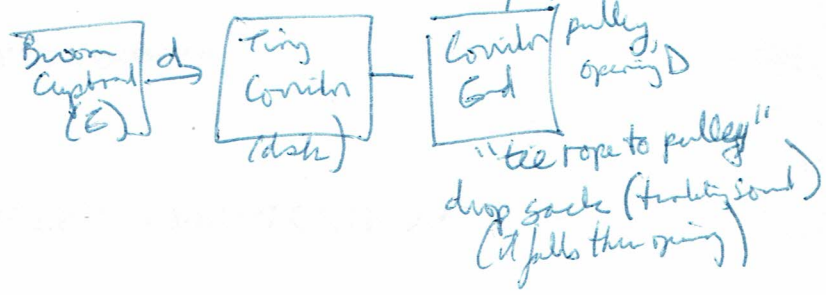 Broom
Cupboard
(E)
d
Tiny
Corridor
(dark)
Corridor
End
pulley,
opening D
"tie rope to pulley"
drop sack (tinkling sound)
(it falls thru opening)